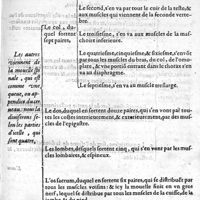 Le second, s'en va par tout le cuir de la teste, &
aux muscles qui viennent de la seconde vertebre.
Le col, duquel sortent sept paires,
Le troisiesme, s'en va aux muscles de la maschoire inferieure.
Le quatriesme, cinquiesme, & sixiesme, s'en vōt
par tous les muscles du col, du bras, d'où
une portiō entrant dans le thorax s'en
va au diaphragme.
Le septiesme, s'en va au muscle trez-large.
Les autres
viennent de
la moüelle spinale, qui est
comme une
queue, ou appendice du cerveau: nous la
diviserons selon
les parties
d'icelle, qui
sont quatre,
Le dos, duquel en sortent douze paires, qui s'en vont par toutes les costes interieurement, & exterieurement, par des muscles de l'epigastre.
Les lombes, desquels sortent cinq, qui s'en vont par les muscles lombaires, & espineux.
L'os sacrum, duquel en sortent six paires, qui se distribuët par
tous les muscles voisins: & icy la moüelle finit en un gros
nerf, lequel se distribuë par tous les muscles de la cuisse, de la